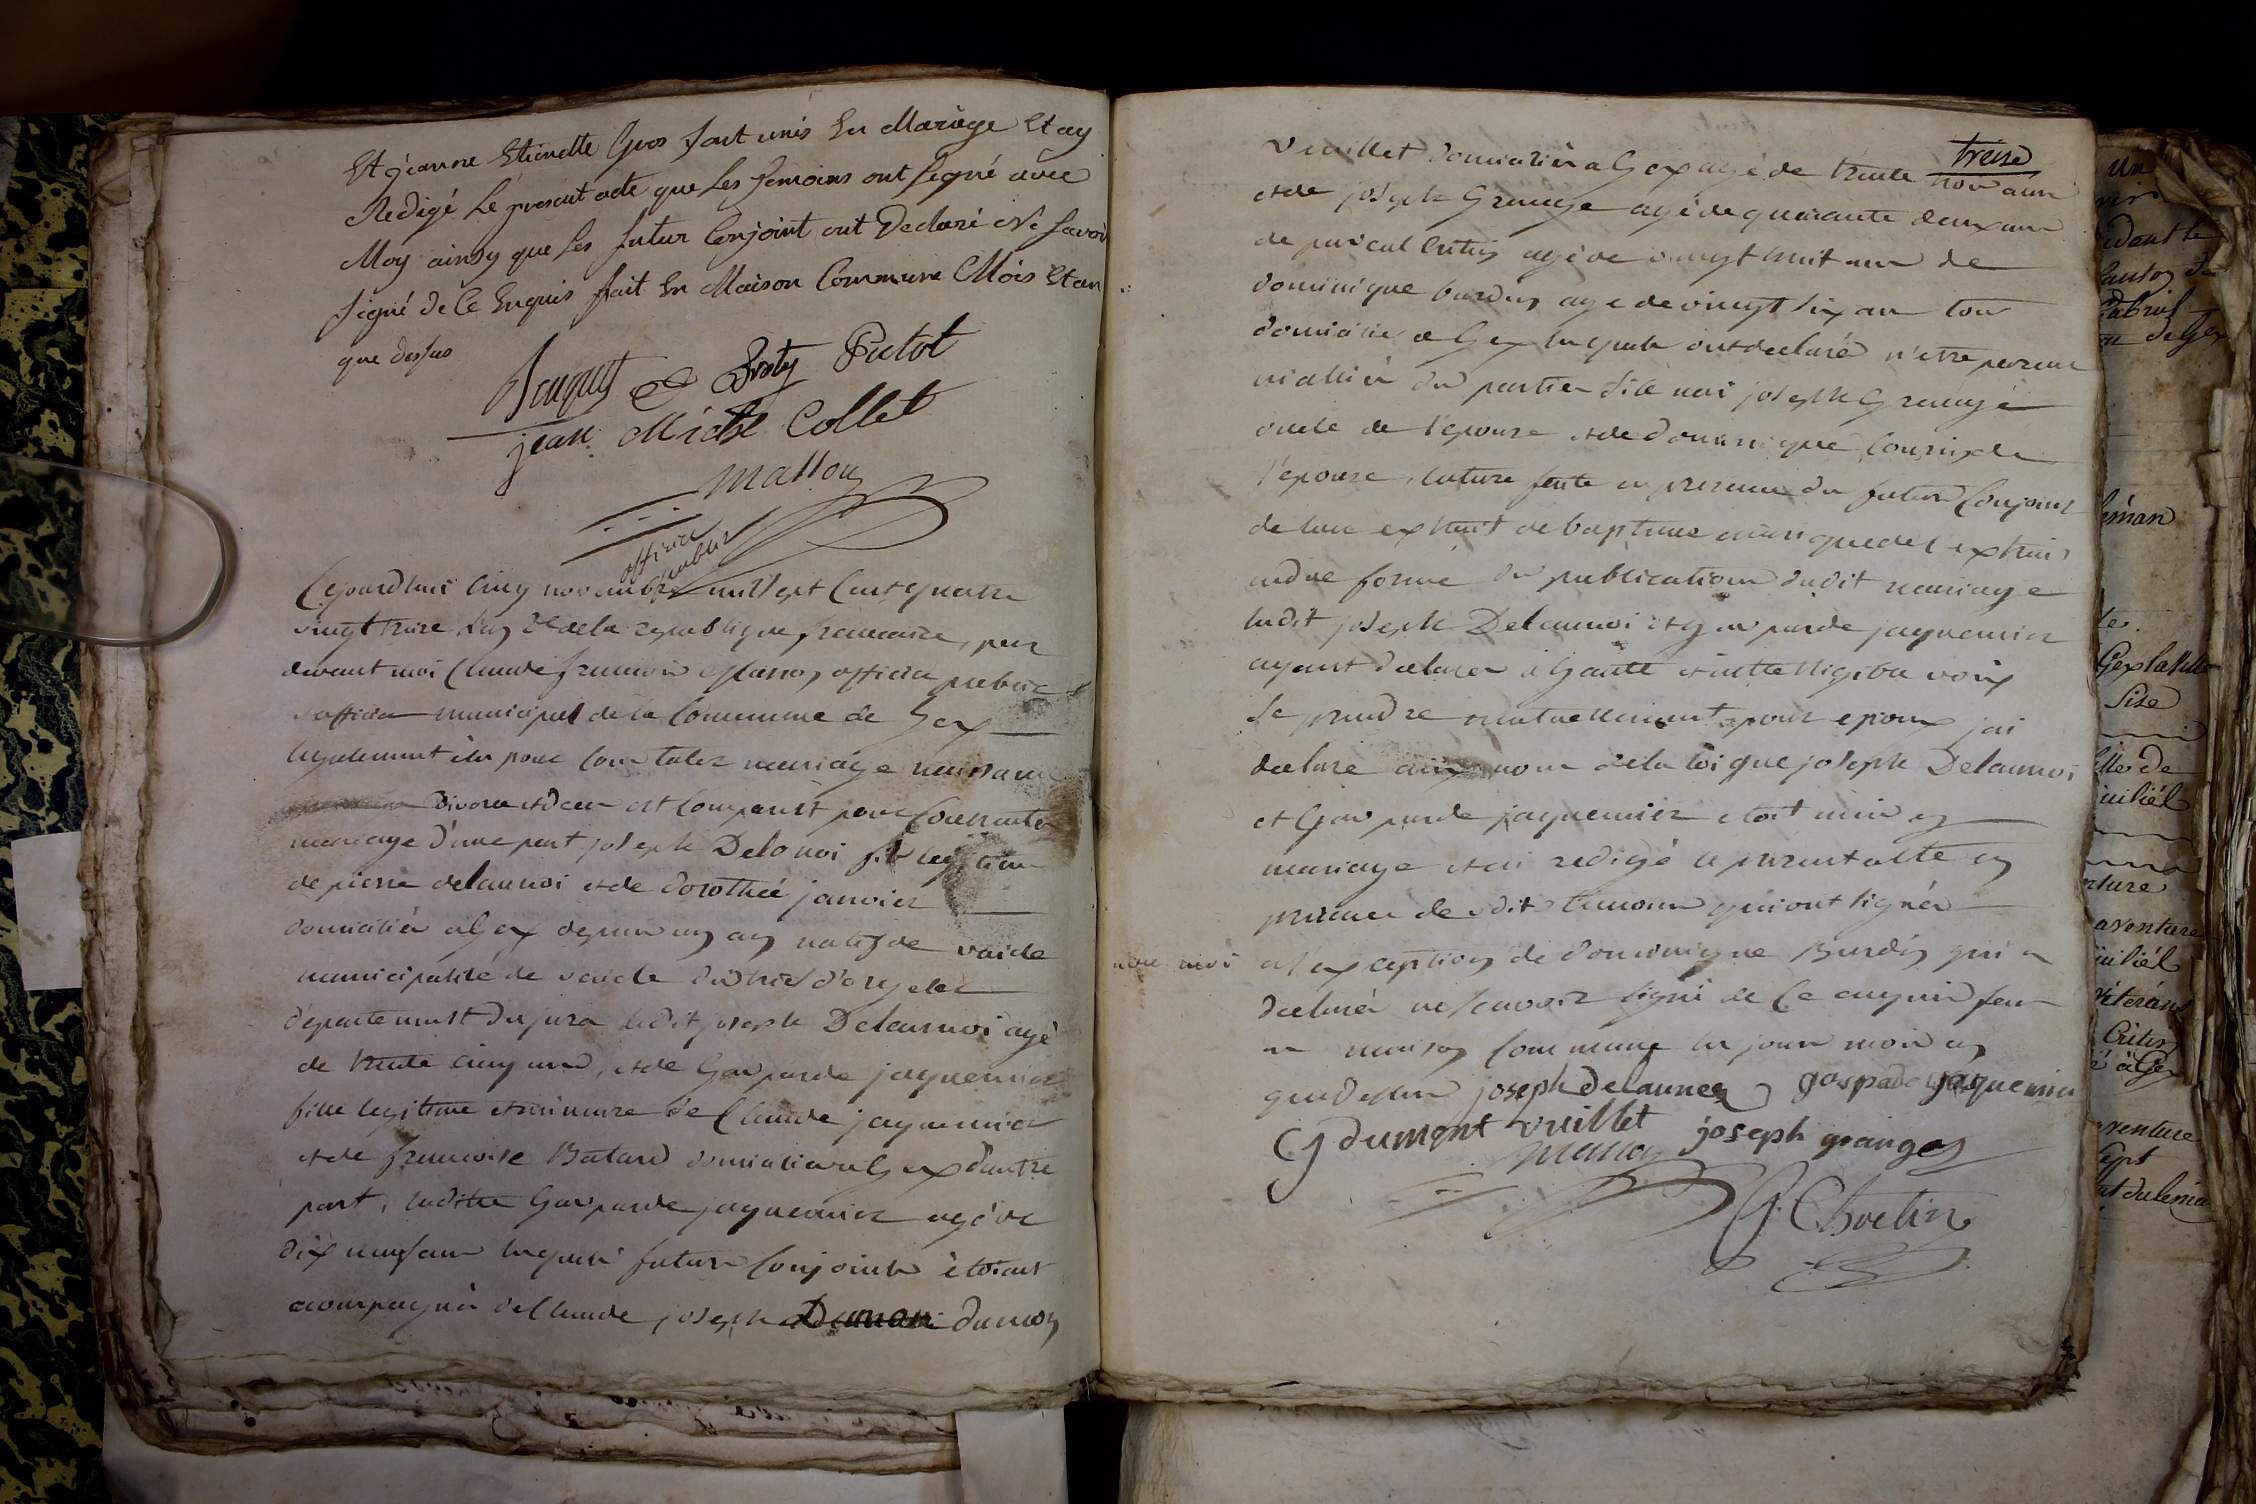 Et jeanne Etienette Gros sont unis En Mariage Et ay
Redigé Le present acte que Les Temoins ont signé avec
Moy ainsy que Les futur Conjoint ont Declaré Ne savoir
signé de Ce Enquis fait En Maison Commune Mois Et an
que dessus
Proty Putot
jean Michel Collet
Masson
officier public
Cejourdhui cinq novembre mil sept Cent quatre
vingt treize L'an 2e de la republique francaise, par
devant moi Claude francois Masson officier public
officier municipal de la Commune de Gex
legalement élu pour constater mariage naissance
divorce et deces est Comparut pour Contracter
mariage d'une part joseph Delonoi fils legitime
de pierre delaunoi et de dorothée janvier
domicilié a Gex depuis un an natif de vaicle
municipalité de vaicle district d'orgelet
departement du jura ledit joseph Delaunoi agé
de trente cinq ans, et de Gasparde jaquemier
fille legitime et mineure de Claude jaquemier
et de francoise Batard domicilié a Gex d'autre
part, laditte Gasparde jaquemier agé de
dix neuf ans lesquels futurs Conjoints étoient
acompagné de Claude joseph dumon
treise
Vuillet domicilié a Gex agé de trente ans
et de joseph Grange agé de quarante deux ans
de pascal Cretin agé de vingt huit ans de
dominique burdin agé de vingt six ans tous
domicilié a Gex lesquels ont declaré n'etre parent
ni allié des parties si ce noi joseph Grange
oncle de l'epouse et de dominique Cousin de
l'epouse, lecture faite en presence des futurs Conjoints
de leur extrait de baptemes ainsi que de l'extrait
en due forme des publications dudit mariage
ledit joseph Delaunoi et Gasparde jaquemier
ayant declarer a haute et intelligible voix
se prendre mutuellement pour epoux jai
declare aux nom de la loi que joseph Delaunoi
et Gasparde jaquemier etoit unis en
mariage et ai redigé le present acte en
presence de dit temoins qui ont signé
avec moi a l'exception de dominique Burdin qui a
declaré ne scavoir signé de Ce enquis fait
en maison Commune les jour mois an
que dessus joseph delauney gaspade jaquemier
CJ dument vuillet joseph grange
Masson
P. Cretin